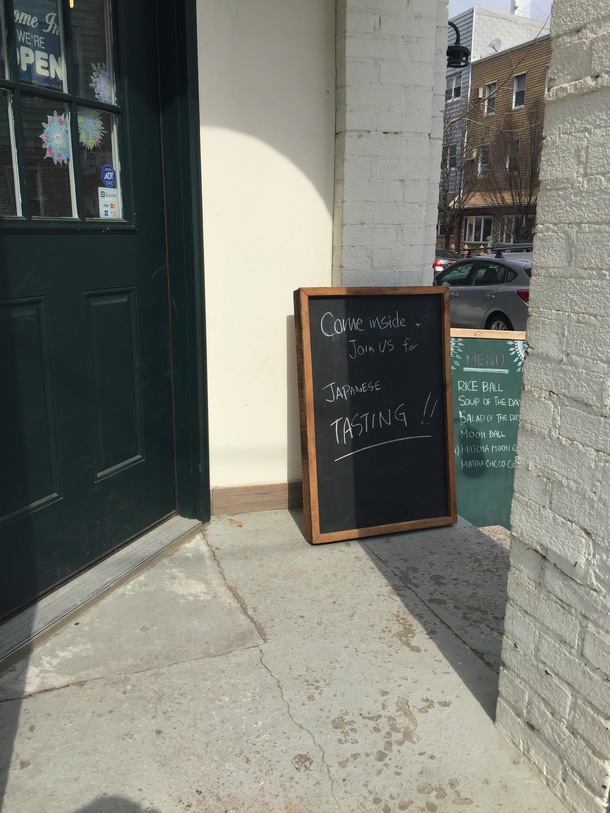 ome In
WE'RE
OPEN
ADT
Come inside +
Join us for
JAPANESE
TASTING !!
MENU
RICE BALL
SOUP OF THE DA
SALAD OF THE DAY
MOCHI BALL
MATCHA MOCHI C
MATCHA CHOCO CO